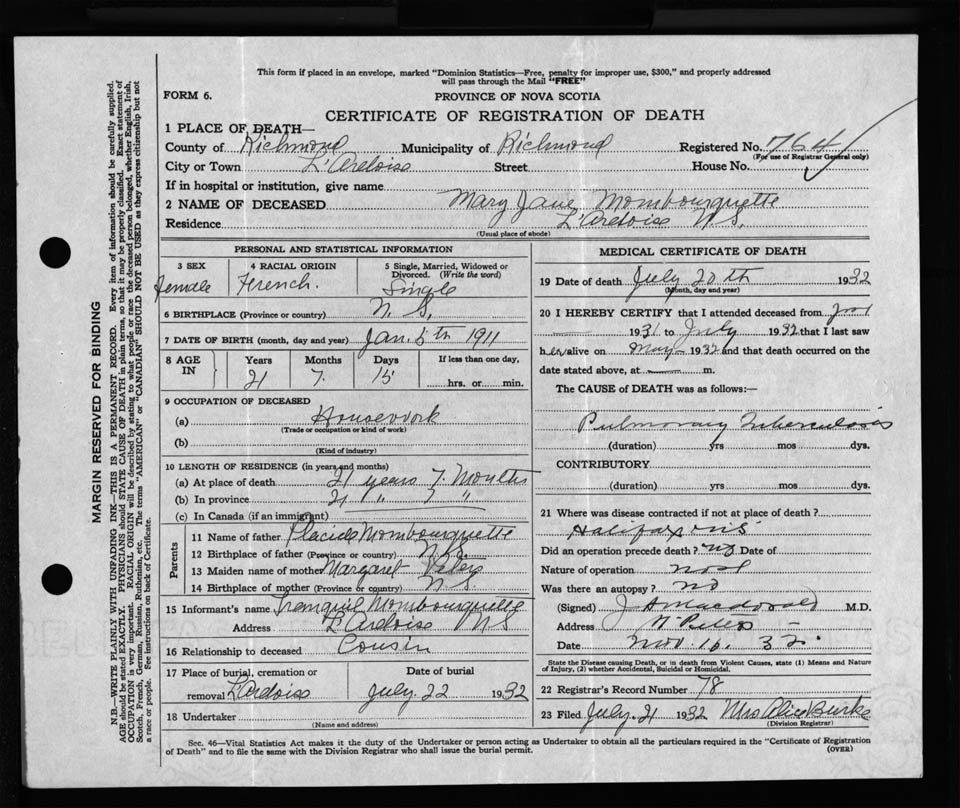 This form if placed in an envelope, marked "Dominion Statistics—Free, penalty for improper use, $300," and properly addressed
will pass through the Mail "FREE"
FORM 6.
PROVINCE OF NOVA SCOTIA
CERTIFICATE OF REGISTRATION OF DEATH
1 PLACE OF DEATH—
County of Richmond Municipality of Richmond Registered No. 764
(For use of Registrar General only)
City or Town L'Ardoise Street House No.
If in hospital or institution, give name
2 NAME OF DECEASED Mary Jane Mombourquette
Residence L'Ardoise N.S.
(Usual place of abode)
PERSONAL AND STATISTICAL INFORMATION
3 SEX 4 RACIAL ORIGIN 5 Single, Married, Widowed or
Divorced. (Write the word)
Female French. Single
6 BIRTHPLACE (Province or country) N.S.
7 DATE OF BIRTH (month, day and year) Jan. 5th 1911
8 AGE IN Years Months Days If less than one day,
21 7. 15 hrs. or min.
9 OCCUPATION OF DECEASED
(a) Housework
(Trade or occupation or kind of work)
(b)
(Kind of industry)
10 LENGTH OF RESIDENCE (in years and months)
(a) At place of death 21 years 7. Months
(b) In province 21 " 7 "
(c) In Canada (if an immigrant)
Parents
11 Name of father Placide Mombourquette
12 Birthplace of father (Province or country) N.S.
13 Maiden name of mother Margaret
14 Birthplace of mother (Province or country) N S
15 Informant's name Tranquil Mombourquette
Address L'Ardoise N S
16 Relationship to deceased Cousin
17 Place of burial, cremation or Date of burial
removal L'Ardoise July. 22 1932
18 Undertaker
(Name and address)
MEDICAL CERTIFICATE OF DEATH
19 Date of death July 20th 1932
(Month, day and year)
20 I HEREBY CERTIFY that I attended deceased from
1931 to July 1932 that I last saw
her alive on May 1932 and that death occurred on the
date stated above, at m.
The CAUSE of DEATH was as follows:—
Pulmonary Tuberculosis
(duration) yrs mos dys.
CONTRIBUTORY
(duration) yrs mos dys.
21 Where was disease contracted if not at place of death?
Halifax N.S.
Did an operation precede death? no Date of
Nature of operation
Was there an autopsy? no
(Signed) J A Macdonald M.D.
Address St Peters
Date Nov. 16. 32.
State the Disease causing Death, or in death from Violent Causes, state (1) Means and Nature
of Injury, (2) whether Accidental, Suicidal or Homicidal.
22 Registrar's Record Number 78
23 Filed July. 21 1932 Mrs Alice Burke
(Division Registrar)
Sec. 46—Vital Statistics Act makes it the duty of the Undertaker or person acting as Undertaker to obtain all the particulars required in the "Certificate of Registration
of Death" and to file the same with the Division Registrar who shall issue the burial permit.
(OVER)
MARGIN RESERVED FOR BINDING
N.B.—WRITE PLAINLY WITH UNFADING INK—THIS IS A PERMANENT RECORD. Every item of information should be carefully supplied.
AGE should be stated EXACTLY. PHYSICIANS should STATE CAUSE OF DEATH in plain terms, so that it may be properly classified. Exact statement of
OCCUPATION is very important. RACIAL ORIGIN will be described by stating to what people or race the deceased person belonged, whether English, Irish,
Scotch, French, German, Russian, Ruthenian, etc. The terms "AMERICAN" or "CANADIAN" SHOULD NOT BE USED as they express citizenship but not
a race or people. See instructions on back of Certificate.